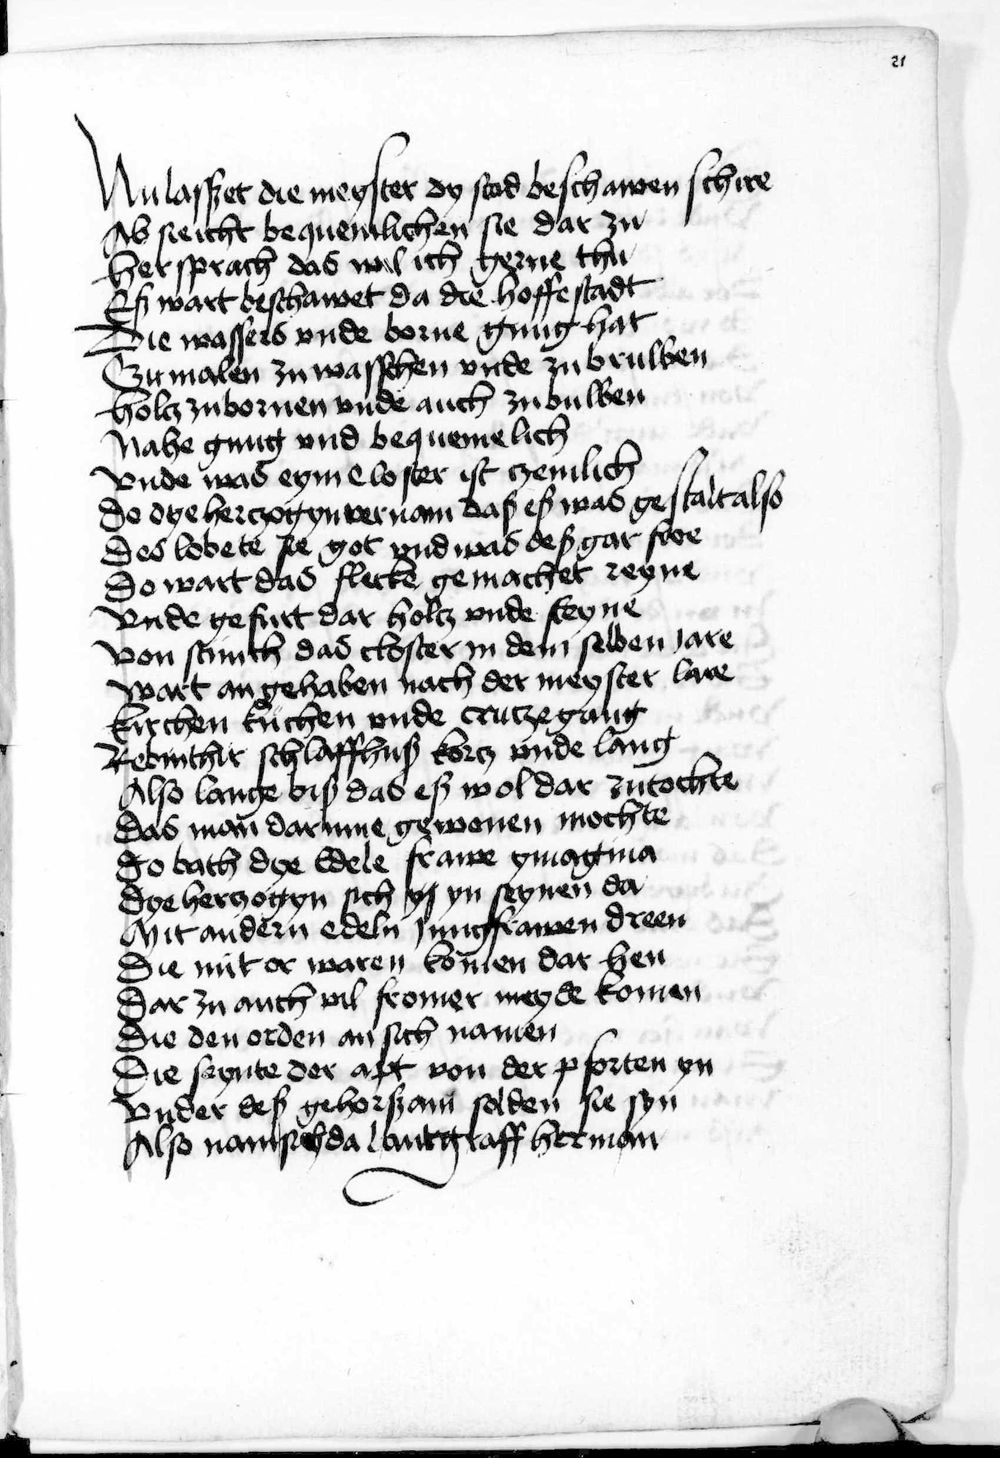 21
Nu lasszet die meyster dy stad beschawen schire
Ab sie icht bequemlichen sie dar zu
Her sprach das wil ich gerne thu
Esz wart beschawet da die hoffestadt
Die wassers vnde borne gnug hat
Zu malen zu wasschen vnde zu bruwen
Holtz zu bornen vnde auch zu buwen
Nahe gnug vnd bequemelich
Vnde was eym closter ist czemlich
Do dye herczogyn vernam dasz esz was gestalt also
Des lobete sie got vnd was desz gar froe
Do wart das flecke gemachet reyne
Vnde gefurt dar holtz vnde steyne
Von stunth das closter in dem selben Jare
Wart an gehaben nach der meyster lare
Kirchen kuchen vnde crutzegang
Rebinther schlaffhusz kortz vnde lang
Also lange bisz das esz wol dar zu tochte
Das man darinne gewonen mochte
Do bath dye Edele frawe ymagina
Dye herczogyn sich yn seynen da
Mit andern edeln Jungfrawen dreen
Die mit or waren komen dar hen
Dar zu auch vil fromer meyde komen
Die den orden an sich namen
Die seynte der apt von der pforten yn
Vnder desz gehorszam solden sie syn
Also nam sich da lantgraff herman